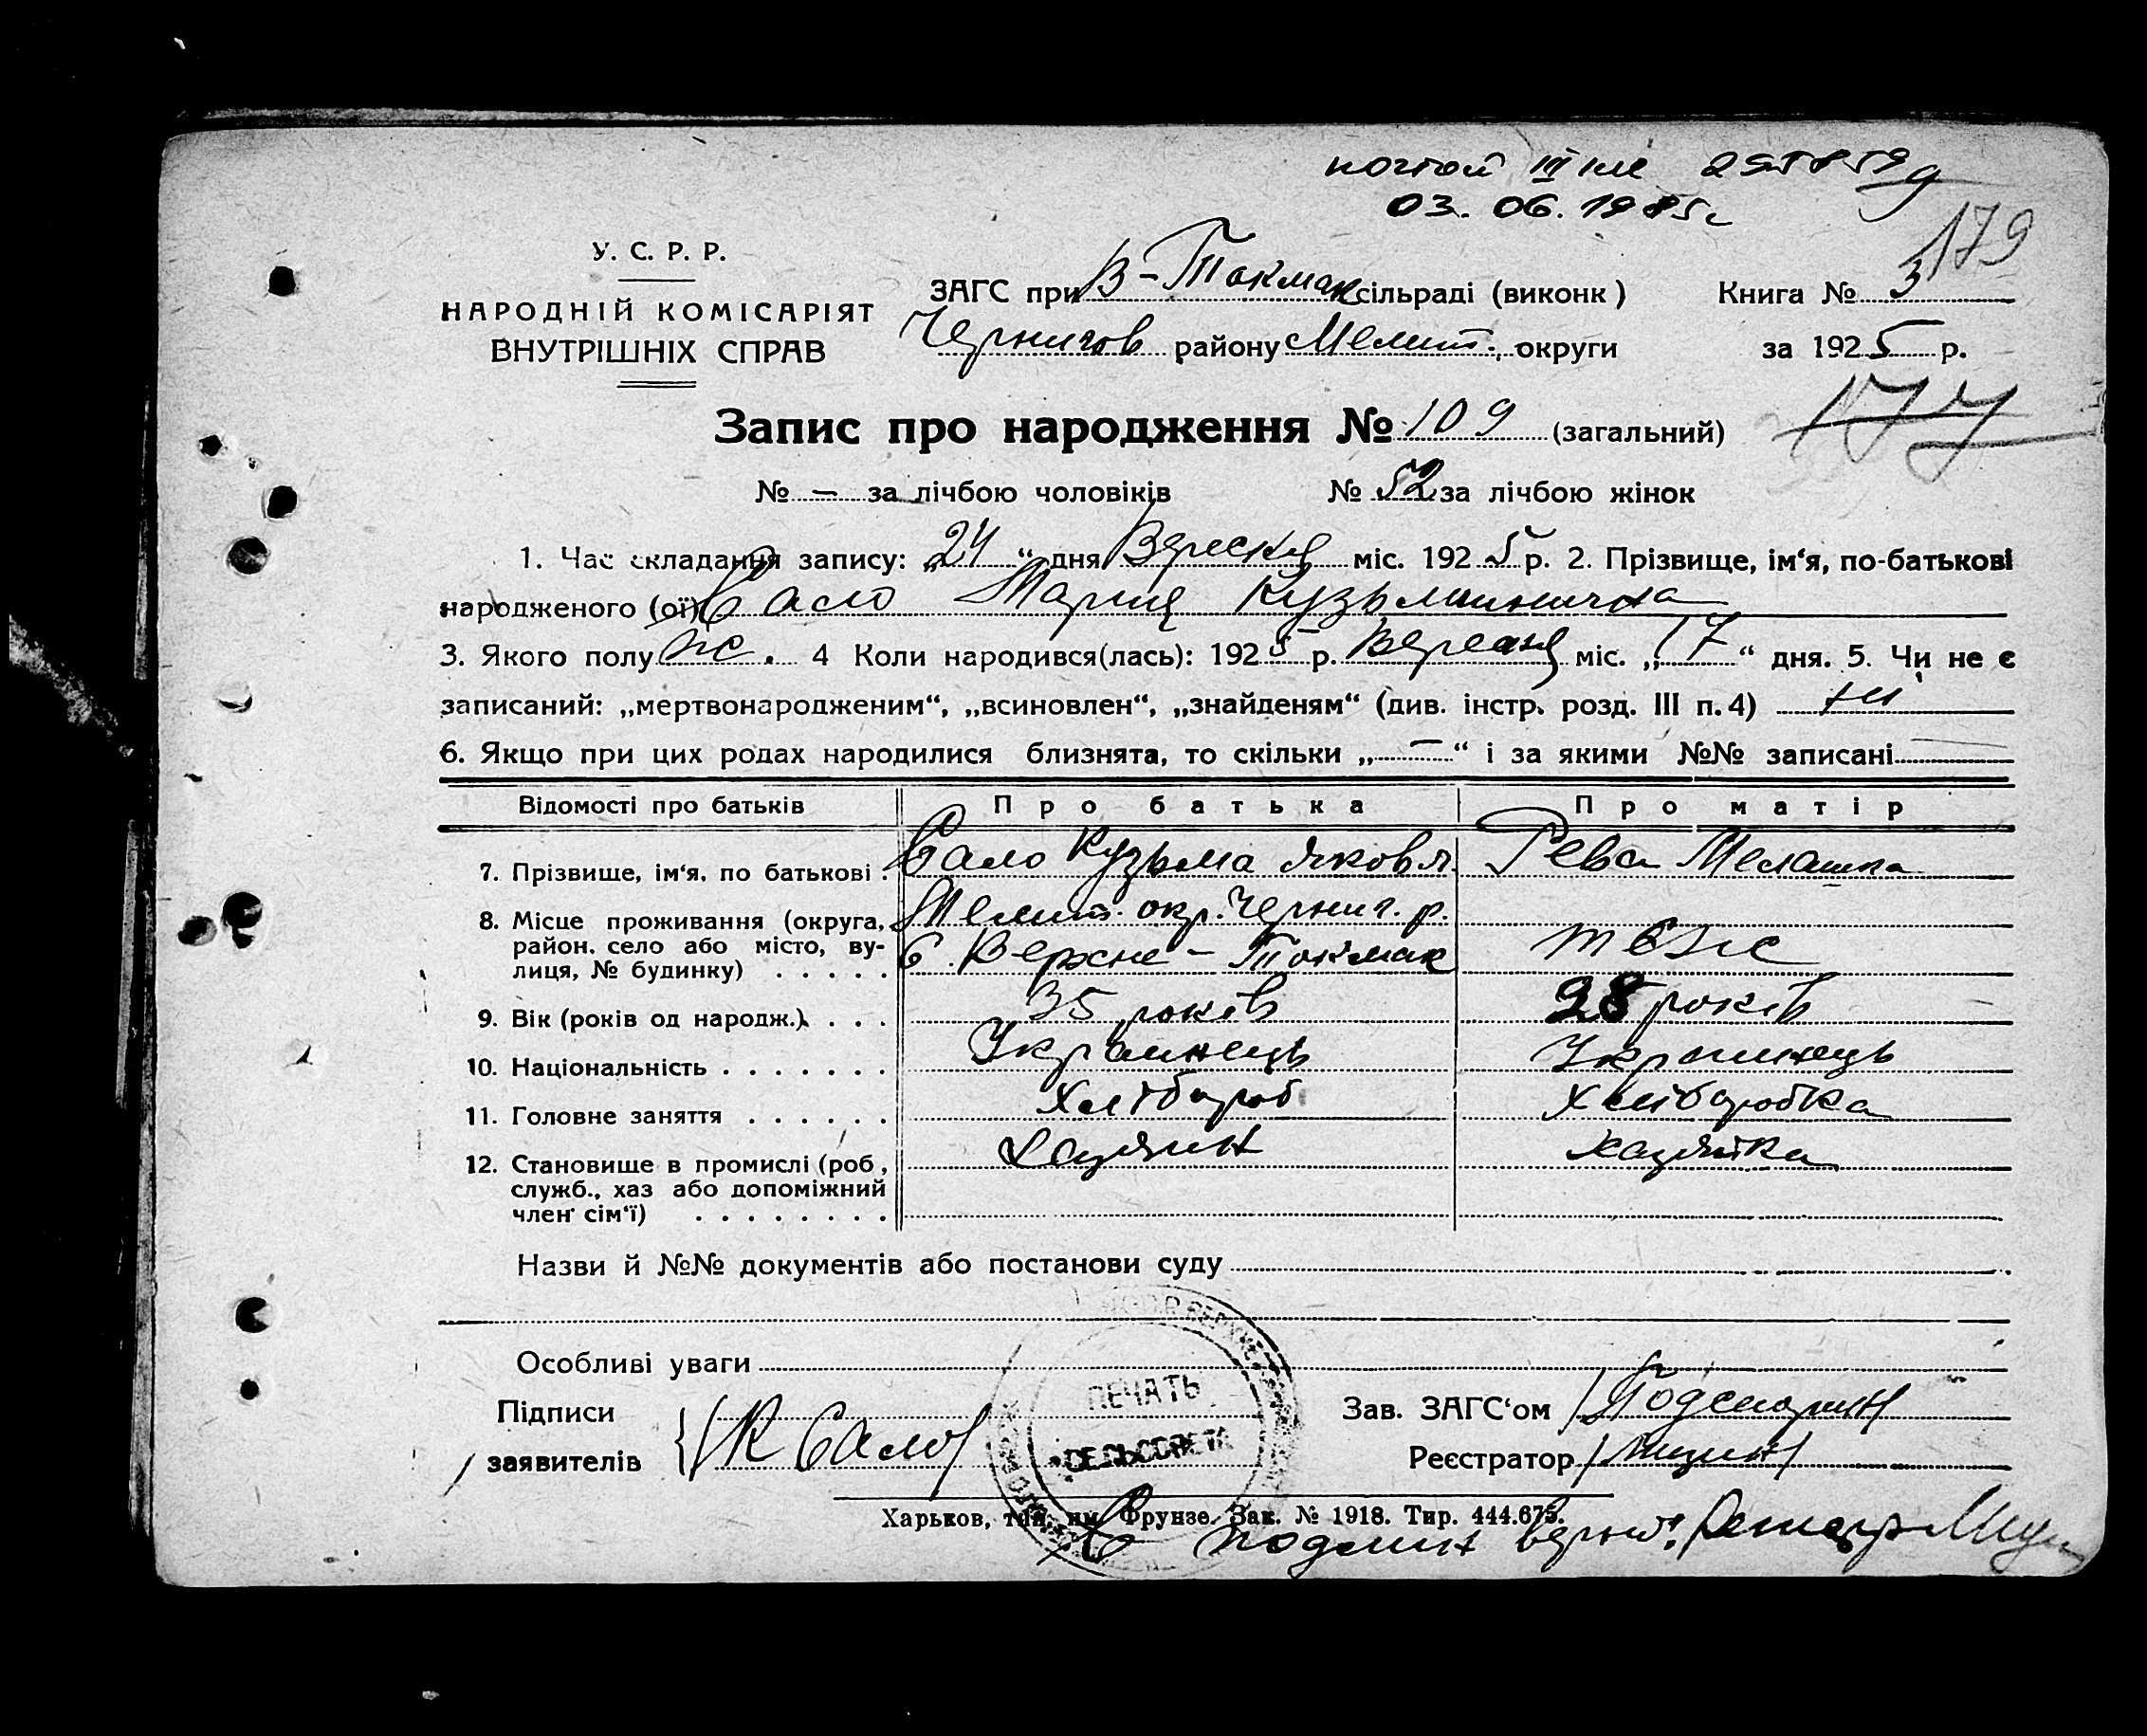 почтой III кле
03. 06. 1985г
179
У. С. Р. Р.
НАРОДНІЙ КОМІСАРІЯТ
ВНУТРІШНІХ СПРАВ
ЗАГС при В-Токмак сільраді (виконк)
Книга № 3
Чернигов району Мелит. округи
за 1925 р.
177
Запис про народження № 109 (загальний)
№ — за лічбою чоловіків № 52 за лічбою жінок
1. Час складання запису: „24“ дня Вересня міс. 1925 р. 2. Прізвище, ім‘я, по-батькові
народженого (ої) Сало Мария Кузьминична
3. Якого полу ж. 4 Коли народився(лась): 1925 р. Вересня міс. „17“ дня. 5. Чи не є
записаний: „мертвонародженим“, „всиновлен“, „знайденям“ (див. інстр. розд. III п. 4) ні
6. Якщо при цих родах народилися близнята, то скільки „—“ і за якими №№ записані
Відомості про батьків Про батька Про матір
7. Прізвище, ім‘я, по батькові . Сало Кузьма Яковл. Рева Мелашка
8. Місце проживання (округа, Мелит. окр. Черниг. р.
район, село або місто, ву- С. Верхне-Токмак тєже
лиця, № будинку) . . . . .
9. Вік (років од народж.) . . . 35 років 28 років
10. Національність . . . . . . . Украинець Украинець
11. Головне заняття . . . . . . Хлібороб Хліборобка
12. Становище в промислі (роб, Хазяин хазяйка
служб., хаз або допоміжний
член сім‘ї) . . . . . . . .
Назви й №№ документів або постанови суду
Особливі уваги
Підписи
заявителів /К Сало/
ПЕЧАТЬ
СЕЛЬСОВЕТА
Зав. ЗАГС‘ом
Реєстратор
Харьков, тип. им. Фрунзе. Зак. № 1918. Тир. 444.673.